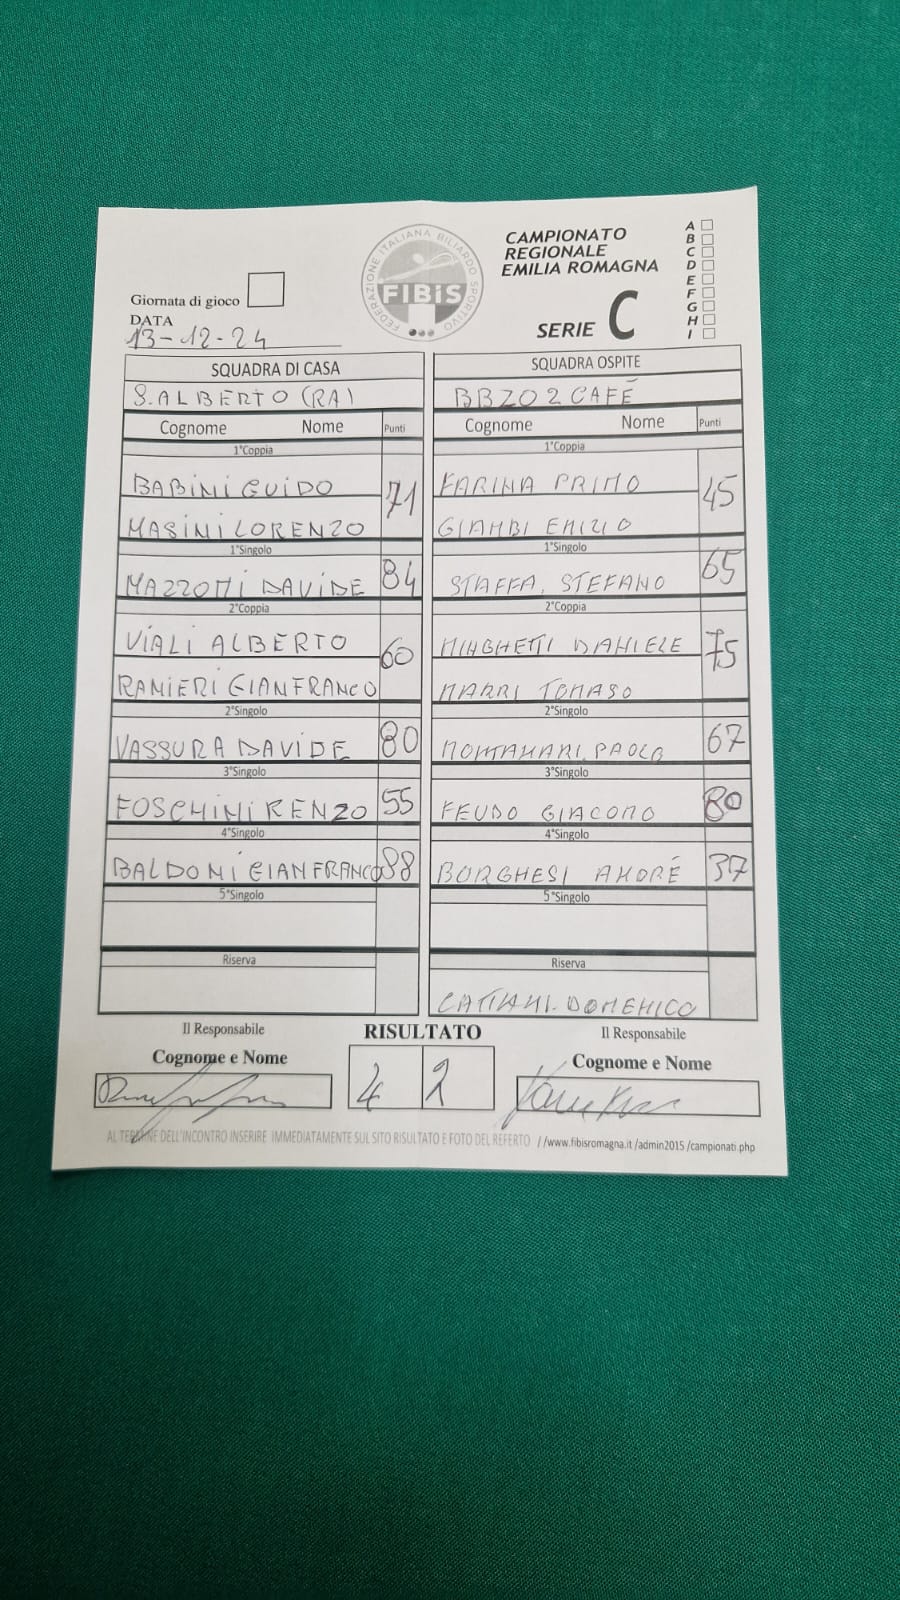 FEDERAZIONE ITALIANA BILIARDO SPORTIVO
FIBiS
CAMPIONATO
REGIONALE
EMILIA ROMAGNA
SERIE C
A
B
C
D
E
F
G
H
I
Giornata di gioco
DATA
13-12-24
SQUADRA DI CASA
S.ALBERTO (RA)
Cognome Nome Punti
1°Coppia
BABINI GUIDO
71
MASINI LORENZO
1°Singolo
MAZZONI DAVIDE 84
2°Coppia
VIALI ALBERTO
60
RANIERI GIANFRANCO
2°Singolo
VASSURA DAVIDE 80
3°Singolo
FOSCHINI RENZO 55
4°Singolo
BALDONI GIANFRANCO 88
5°Singolo
Riserva
SQUADRA OSPITE
BBZO 2 CAFÉ
Cognome Nome Punti
1°Coppia
FARINA PRIMO
45
GIAMBI ENIZIO
1°Singolo
STAFFA, STEFANO 65
2°Coppia
MINGHETTI DANIELE
75
MARRI TOMASO
2°Singolo
MONTANARI PAOLO 67
3°Singolo
FEUDO GIACOMO 80
4°Singolo
BORGHESI ANDRÉ 37
5°Singolo
Riserva
CATTANI DOMENICO
Il Responsabile
Cognome e Nome
RISULTATO
4 2
Il Responsabile
Cognome e Nome
AL TERMINE DELL'INCONTRO INSERIRE IMMEDIATAMENTE SUL SITO RISULTATO E FOTO DEL REFERTO //www.fibisromagna.it /admin2015 /campionati.php